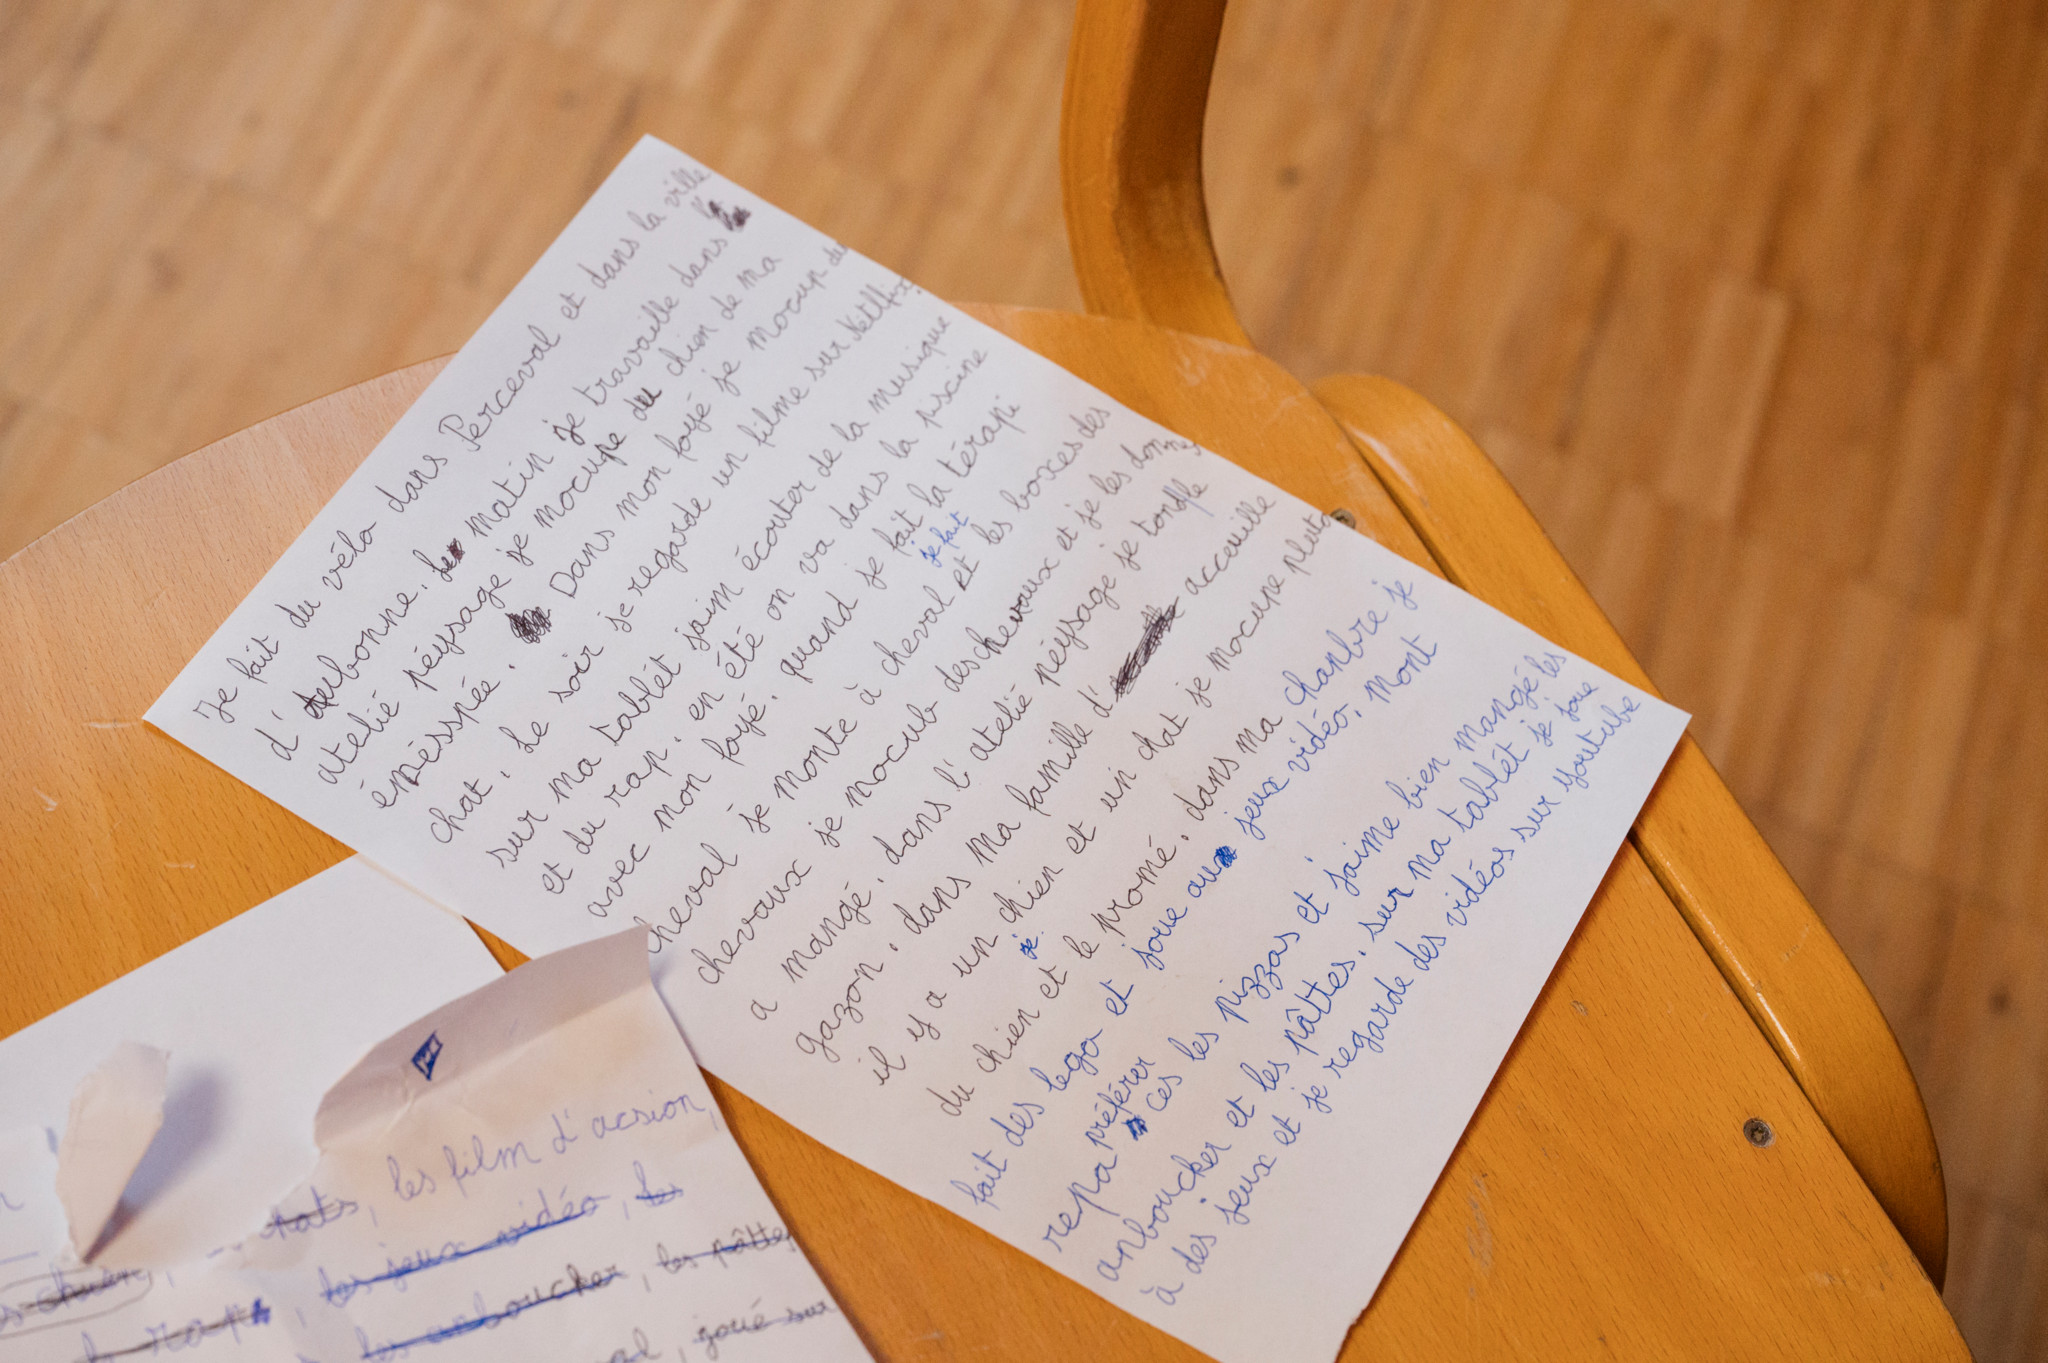 Je fait du vélo dans Perceval et dans la ville
d'Aubonne. Le matin je travaille dans la
atelié péysage je mocupe du chien de ma
émésspée. Dans mon foyé je mocup du
chat. Le soir je regarde un filme sur Netflix.
sur ma tablèt j'aim écouter de la musique
et du rap. en été on va dans la piscine
avec mon foyé. quand je fait la térapi
je fait
cheval je monte à cheval et les boxes des
chevaux je mocub des chevaux et je les donne
a mangé. dans l'atelié péysage je tondle
gazon. dans ma famille d' acceuille
il y a un chien et un chat je mocupe pluto
du chien et le promé. dans ma chanbre je
jé.
fait des lego et joue aux jeux vidéo. Mont
repa préférer ces les pizzas et j'aime bien mangé les
anboucker et les pâttes. sur ma tablèt je joue
à des jeux et je regarde des vidéos sur youtube
les film d'acsion,
les jeux vidéo, le
rap, les anboucker, les pâttes
joué sur